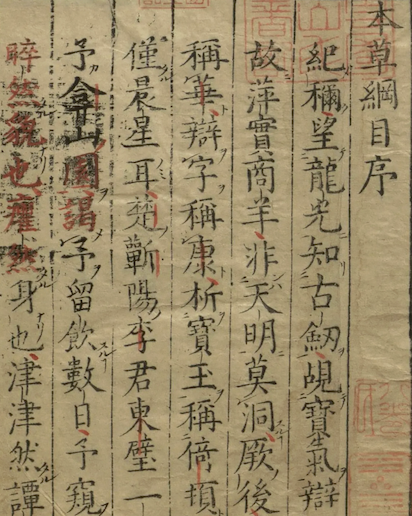 本草綱目序
紀稱望龍光知古劒覘寶氣辯
故萍實商羊非天明莫洞厥後
稱華辯字稱康析寶玉稱倚頓
僅晨星耳楚蘄陽李君東璧一
予弇山園謁予留飲數日予窺
睟然貌也癯然身也津津然譚